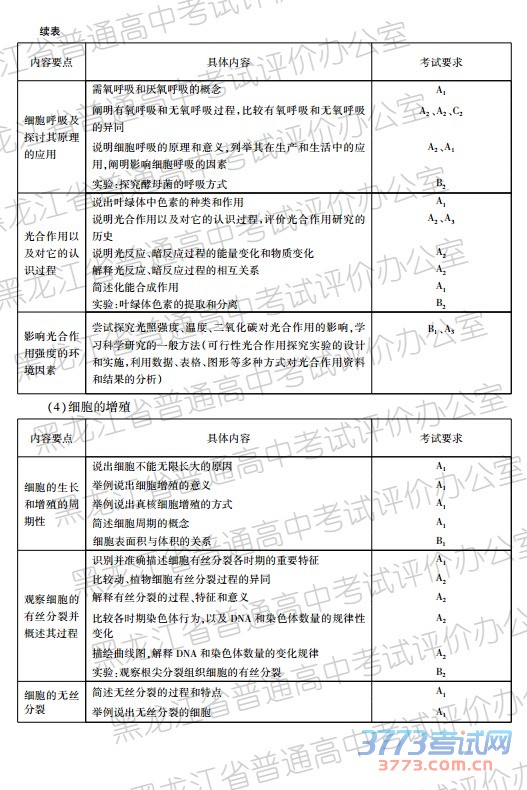 续表
内容要点 具体内容 考试要求
细胞呼吸及探讨其原理的应用
需氧呼吸和厌氧呼吸的概念 A₁
阐明有氧呼吸和无氧呼吸过程,比较有氧呼吸和无氧呼吸 A₂、A₂、C₂
的异同
说明细胞呼吸的原理和意义,列举其在生产和生活中的应 A₂、A₁
用,阐明影响细胞呼吸的因素
实验:探究酵母菌的呼吸方式 B₂
光合作用以及对它的认识过程
说出叶绿体中色素的种类和作用 A₁
说明光合作用以及对它的认识过程,评价光合作用研究的 A₂、A₃
历史
说明光反应、暗反应过程的能量变化和物质变化 A₂
解释光反应、暗反应过程的相互关系 A₂
简述化能合成作用 A₁
实验:叶绿体色素的提取和分离 B₂
影响光合作用强度的环境因素
尝试探究光照强度、温度、二氧化碳对光合作用的影响,学 B₁、A₃
习科学研究的一般方法(可行性光合作用探究实验的设计
和实施,利用数据、表格、图形等多种方式对光合作用资料
和结果的分析)
(4)细胞的增殖
内容要点 具体内容 考试要求
细胞的生长和增殖的周期性
说出细胞不能无限长大的原因 A₁
举例说出细胞增殖的意义 A₁
举例说出真核细胞增殖的方式 A₁
简述细胞周期的概念 A₁
细胞表面积与体积的关系 B₁
观察细胞的有丝分裂并概述其过程
识别并准确描述细胞有丝分裂各时期的重要特征 A₁
比较动、植物细胞有丝分裂过程的异同 A₂
解释有丝分裂的过程、特征和意义 A₂
比较各时期染色体行为,以及DNA和染色体数量的规律性 A₂
变化
描绘曲线图,解释DNA和染色体数量的变化规律 A₂
实验:观察根尖分裂组织细胞的有丝分裂 B₂
细胞的无丝分裂
简述无丝分裂的过程和特点 A₁
举例说出无丝分裂的细胞 A₁
黑龙江省普通高中考试评价办公室
3773考试网
3773.com.cn